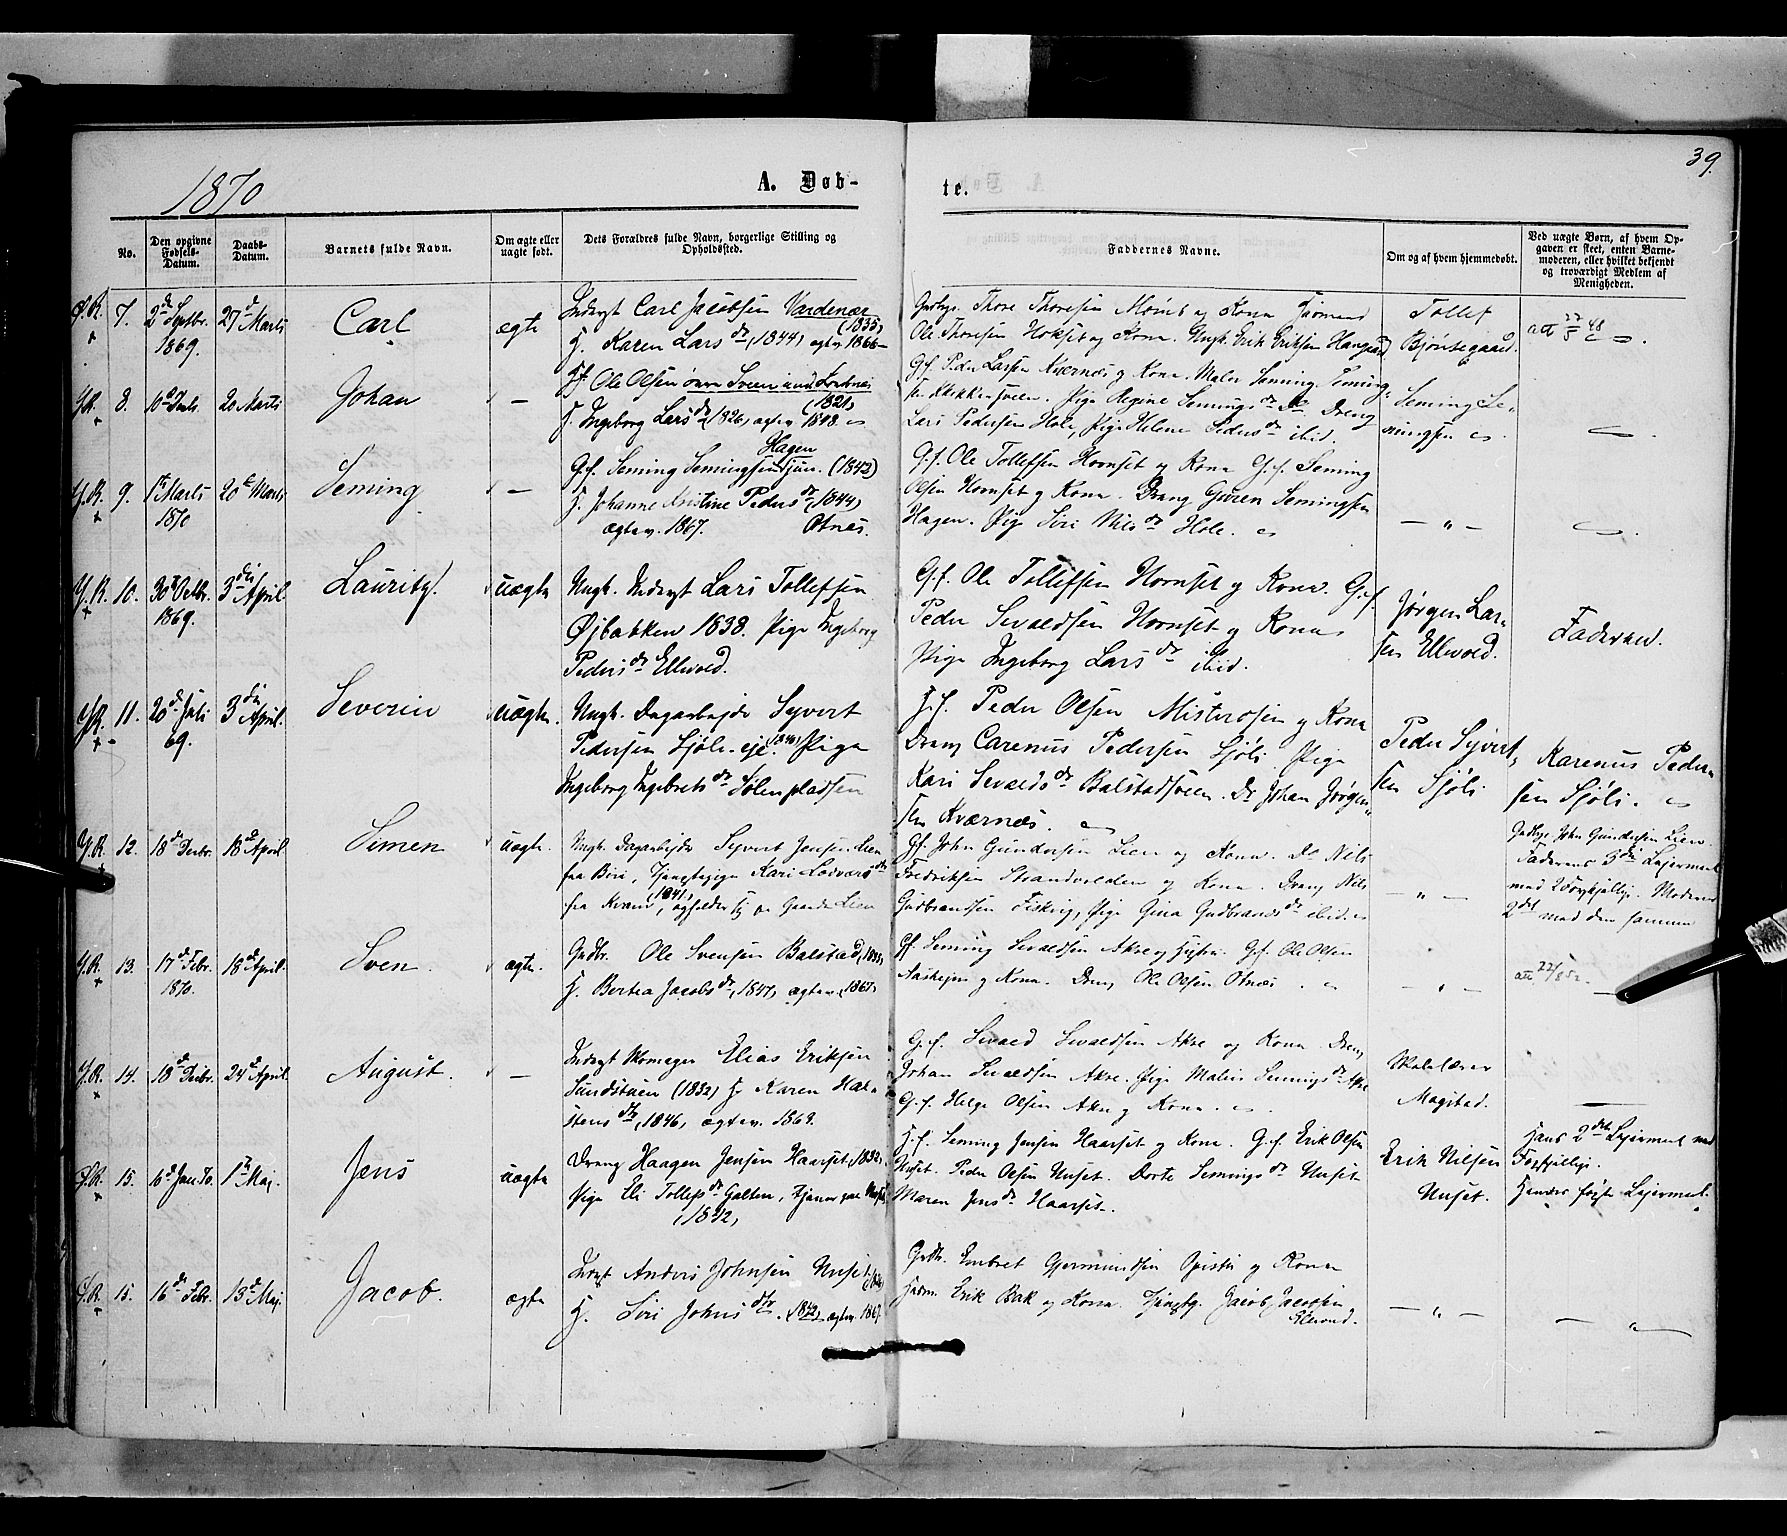 39.
1870
A. Døb-
te.
No.
Den opgivne Fødsels-Datum.
Daabs-Datum.
Barnets fulde Navn.
Om ægte eller uægte født.
Dets Forældres fulde Navn, borgerlige Stilling og Opholdssted.
Faddernes Navne.
Om og af hvem hjemmedøbt.
Ved uægte Børn, af hvem Opgaven er skeet, enten Barnemoderen, eller hvilket bekjendt og troværdigt Medlem af Menigheden.
7. 2de Septbr. 1869. 27d Marts Carl ægte
Indergst Carl Jacobsen Vardenær (1835)
H. Karen Larsdr (1844) 1866
Thore Thoresen og Kona
Ole Thoresen og Kona. Ungk. Erik Eriksen
Tollef
Bjøntegaard.
8. 20 Marts Johan —
Gf. Ole Olsen Sveen (1821)
H. Ingeborg Larsdr (1826) 1848.
Gf. Peder Larsen Kværnes og Kona. Maler Seming
Pige Regine Semingsdr Do. Dreng
Lars Pedersen Hole, Pige Helene Pedersdr ibid.
Seming Se-
mingsen
9. 1ste Marts 1870 20de Marts Seming —
Hagen
G.f. Seming Semingsen jun. (1842)
H. Johanne Kristine Pedersdr (1844)
ægtev. 1867. Otnes.
G.f. Ole Tollefsen Hornset og Kona G.f. Seming
Olsen Hornset og Kona. Dreng Guren Semingsen
Hagen. Pige Siri Nilsdr Hole.
— " —
10. 30te Octbr. 1869. 3die April Lauritz. uægte
Ungk. Indergst Lars Tollefsen
Øjbakken 1838. Pige Ingeborg
Pedersdr Ellevold.
G.f. Ole Tollefsen Hornset og Kona. G.f.
Peder Sevaldsen Hornset og Kona
Pige Ingeborg Larsdr ibid.
Jørgen Lar-
sen Ellevold.
Faderen.
11. 20de Juli 69. 3die April. Severin uægte.
Ungk. Dagarbejder Syvert
Pedersen Sjøli eje (1846) Pige
Ingeborg Ingebretsdr Sølenpladsen
G.f. Peder Olsen Misterosen og Kona
Dreng Carenus Pedersen Sjøli Pige
Kari Sevaldsdr Balstadsveen. Do Johan Jørgen-
sen Kværnes.
Peder Syvert-
sen Sjøli
Karenus Peder-
sen Sjøli.
12. 18de Decbr. 18de April Simen uægte.
Ungk. Dagarbejder Syvert Jensen Lien
fra Biri, Tjenestepige Kari Lodvarsdr
fra Kvam (1841), opholder sig paa Gaarden Lien
Gf. John Gundersen Lien og Kona. Do Nils
Fredriksen Strandvolden og Kona. Dreng Nils
Gudbrandsen Fiskvig, Pige Gina Gudbrandsdr ibid.
— " —
Gudbr. John Gundersen Lien.
Faderens 3die Lejermaal
med 2 forskjellige. Moderens
2det med den samme
13. 17de Febr. 1870. 18de April. Sven. ægte.
Gudbr. Ole Svensen Balstad
H. Bertea Jacobsdr (1847) ægtev. (1867)
Gf. Seming Sevaldsen Akre og Hustru. G.f. Ole Olsen
Aaskjen og Kona. Dreng Ole Olsen Otnes
— " —
att 22/8 52.
14. 18de Decbr. 24de April. August. —
Indergst Skomager Elias Eriksen
Sundstuen (1832) H. Karen Hal-
stensdtr (1846) ægtev. 1869.
G.f. Sevald Sevaldsen Akre og Kona. Dreng
Johan Sevaldsen Akre. Pige Malin Semingsdr Akre
G.f. Helge Olsen Akre og Kona.
Skolelærer
Magstad.
15. 16de Jan. 70. 1ste Maj. Jens uægte
Dreng Haagen Jensen Haarset (1832)
Pige Eli Tollefsdr Galten, tjener paa
(1842)
G.f. Seming Jensen Haarset og Kona. G.f. Erik Olsen
Nuset. Peder Olsen Nuset. Dorte Semingsdr Nuset
Maren Jensdr Haarset.
Erik Nilsen
Nuset.
Hans 2det Lejermaal med
Forskjellige.
Hendes første Lejermaal.
15. 16de Febr. 13de Maj. Jacob. ægte
Indgst Anders Johnsen Nuset
H. Siri Johnsdtr. (1842) ægtev. 1867.
Gudbr. Embret Gjermundsen og Kona
Erik Bak og Kona. Jacob Jacobsen
— " —
— " —